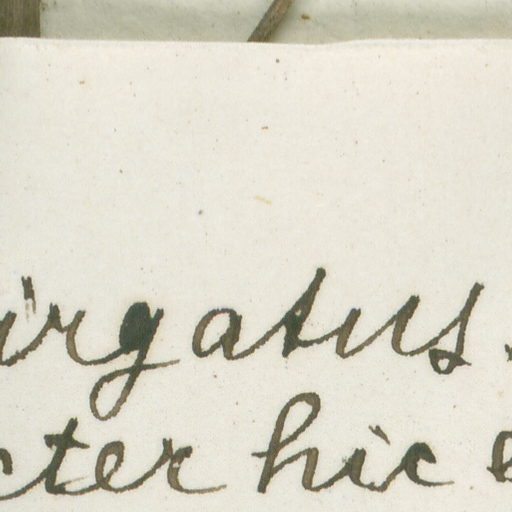 irgatus.
cter hic e